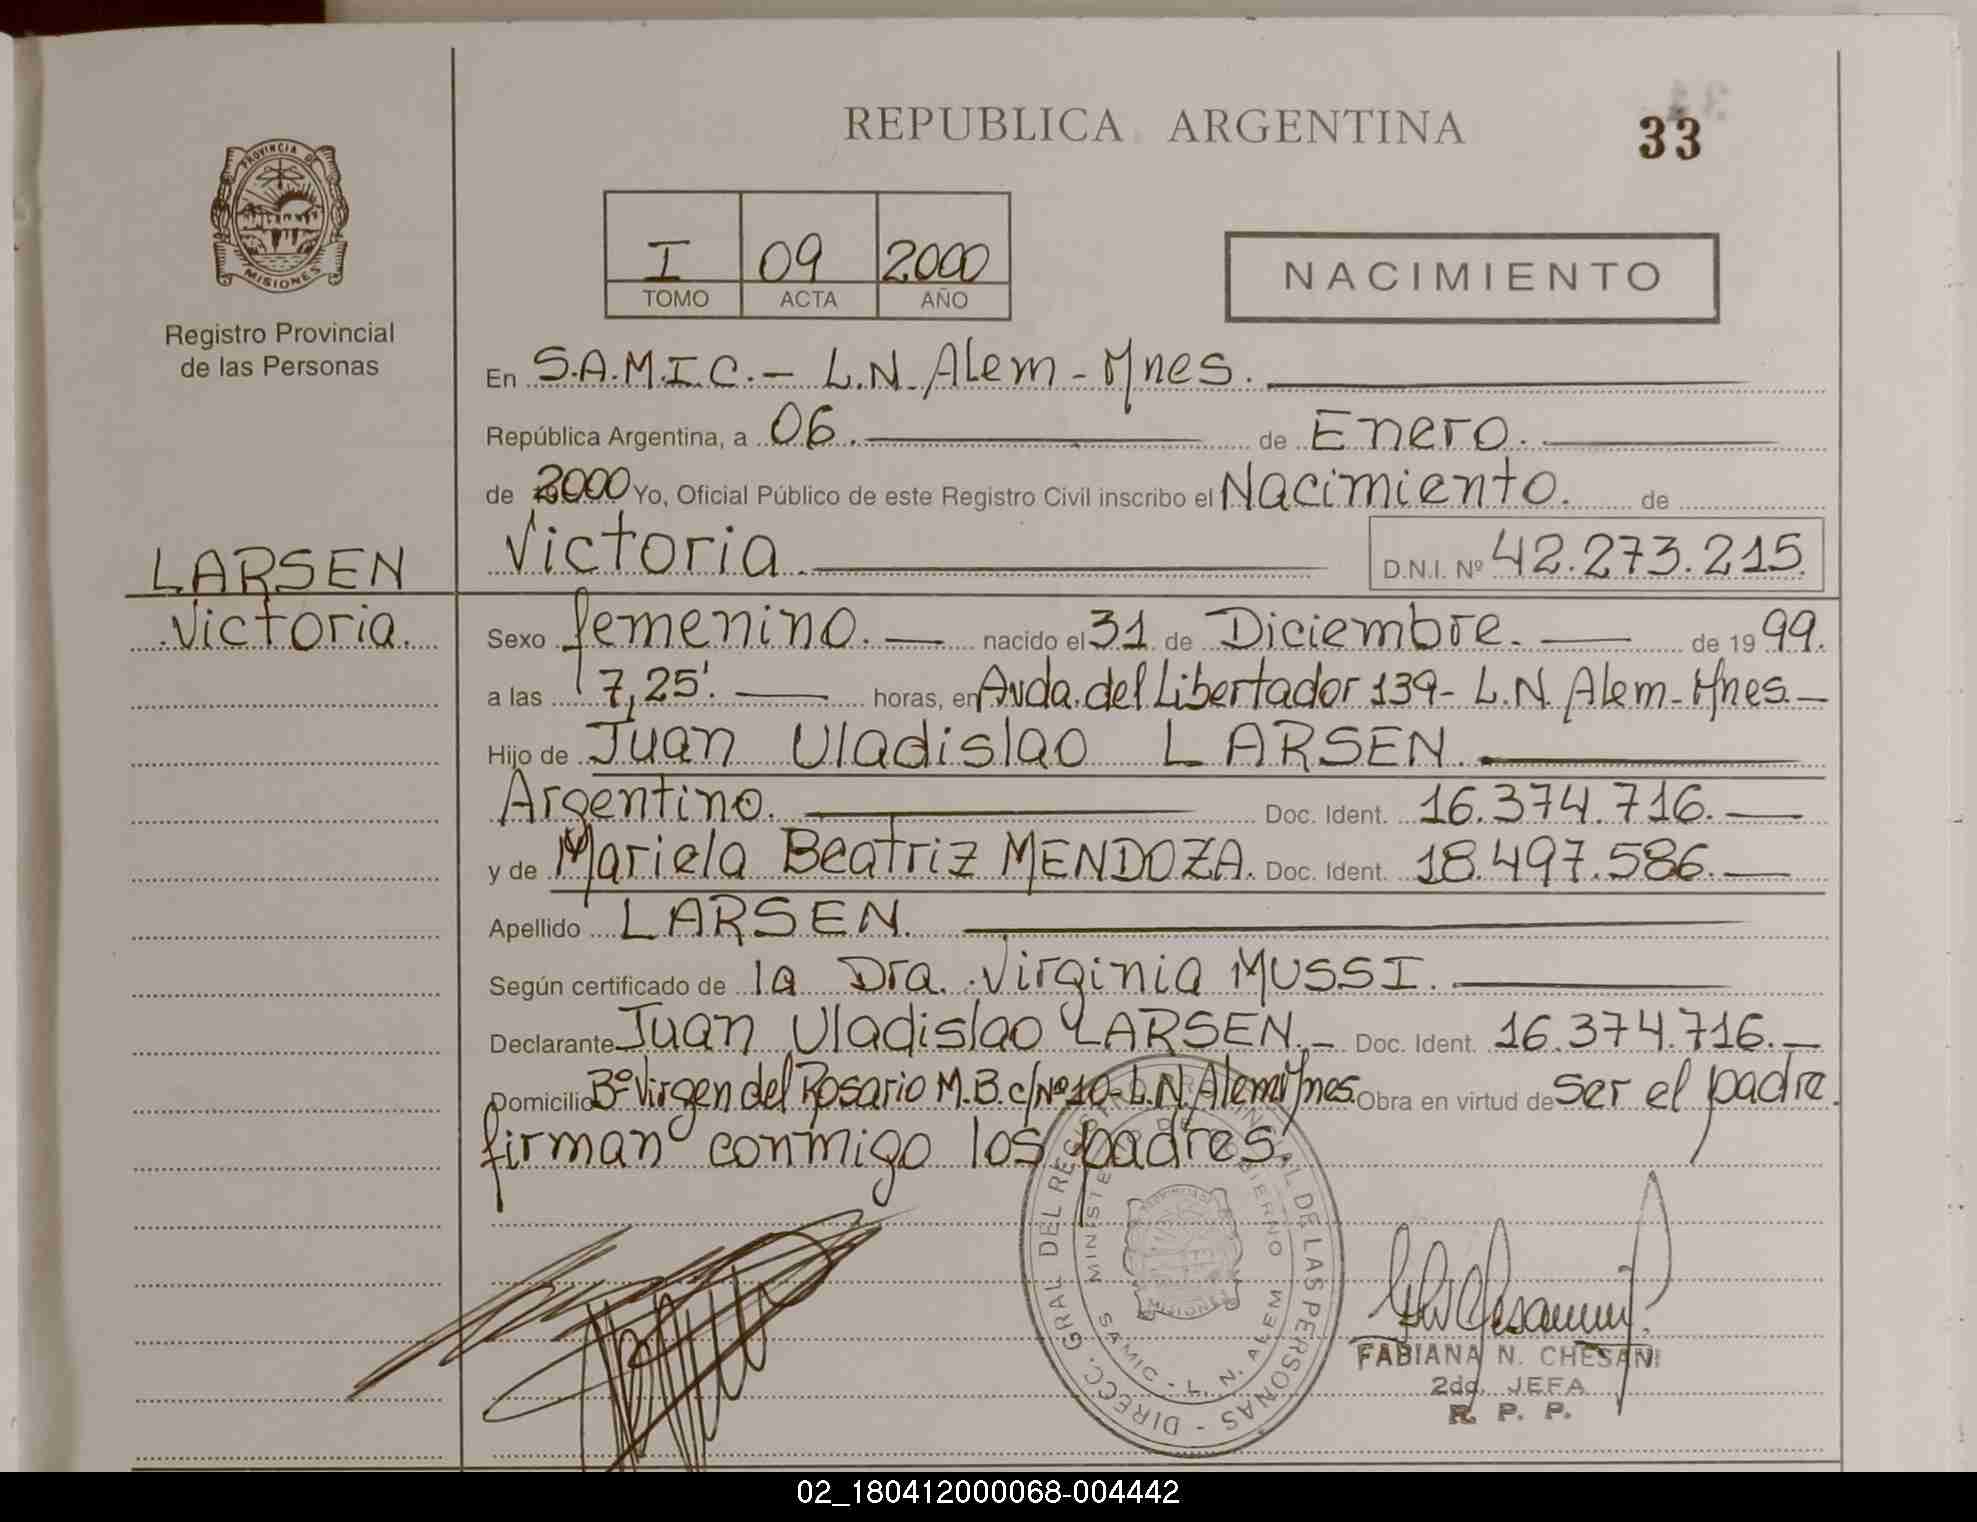 REPUBLICA ARGENTINA
33
PROVINCIA DE
MISIONES
Registro Provincial
de las Personas
I 09 2000
TOMO ACTA AÑO
NACIMIENTO
En S.A.M.I.C. - L.N. Alem - Mnes.
República Argentina, a 06. de Enero.
de 2000 Yo, Oficial Público de este Registro Civil inscribo el Nacimiento. de
Victoria. D.N.I. Nº 42.273.215.
LARSEN
Victoria.
Sexo femenino. nacido el 31 de Diciembre. de 19 99.
a las 7,25'. horas, en Avda. del Libertador 139 - L.N. Alem - Mnes. -
Hijo de Juan Uladislao LARSEN.
Argentino. Doc. Ident. 16.374.716. -
y de Mariela Beatriz MENDOZA. Doc. Ident. 18.497.586. -
Apellido LARSEN.
Según certificado de la Dra. Virginia MUSSI.
Declarante Juan Uladislao LARSEN. - Doc. Ident. 16.374.716. -
Domicilio Bº Virgen del Rosario M.B. c/Nº 10 - L.N. Alem Mnes. Obra en virtud de ser el padre.
firman conmigo los padres.
DIRECC. GRAL DEL REGISTRO PROVINCIAL DE LAS PERSONAS -
MINISTERIO DE GOBIERNO
SAMIC - L. N. ALEM
FABIANA N. CHESANI
2da. JEFA
R. P. P.
02_180412000068-004442